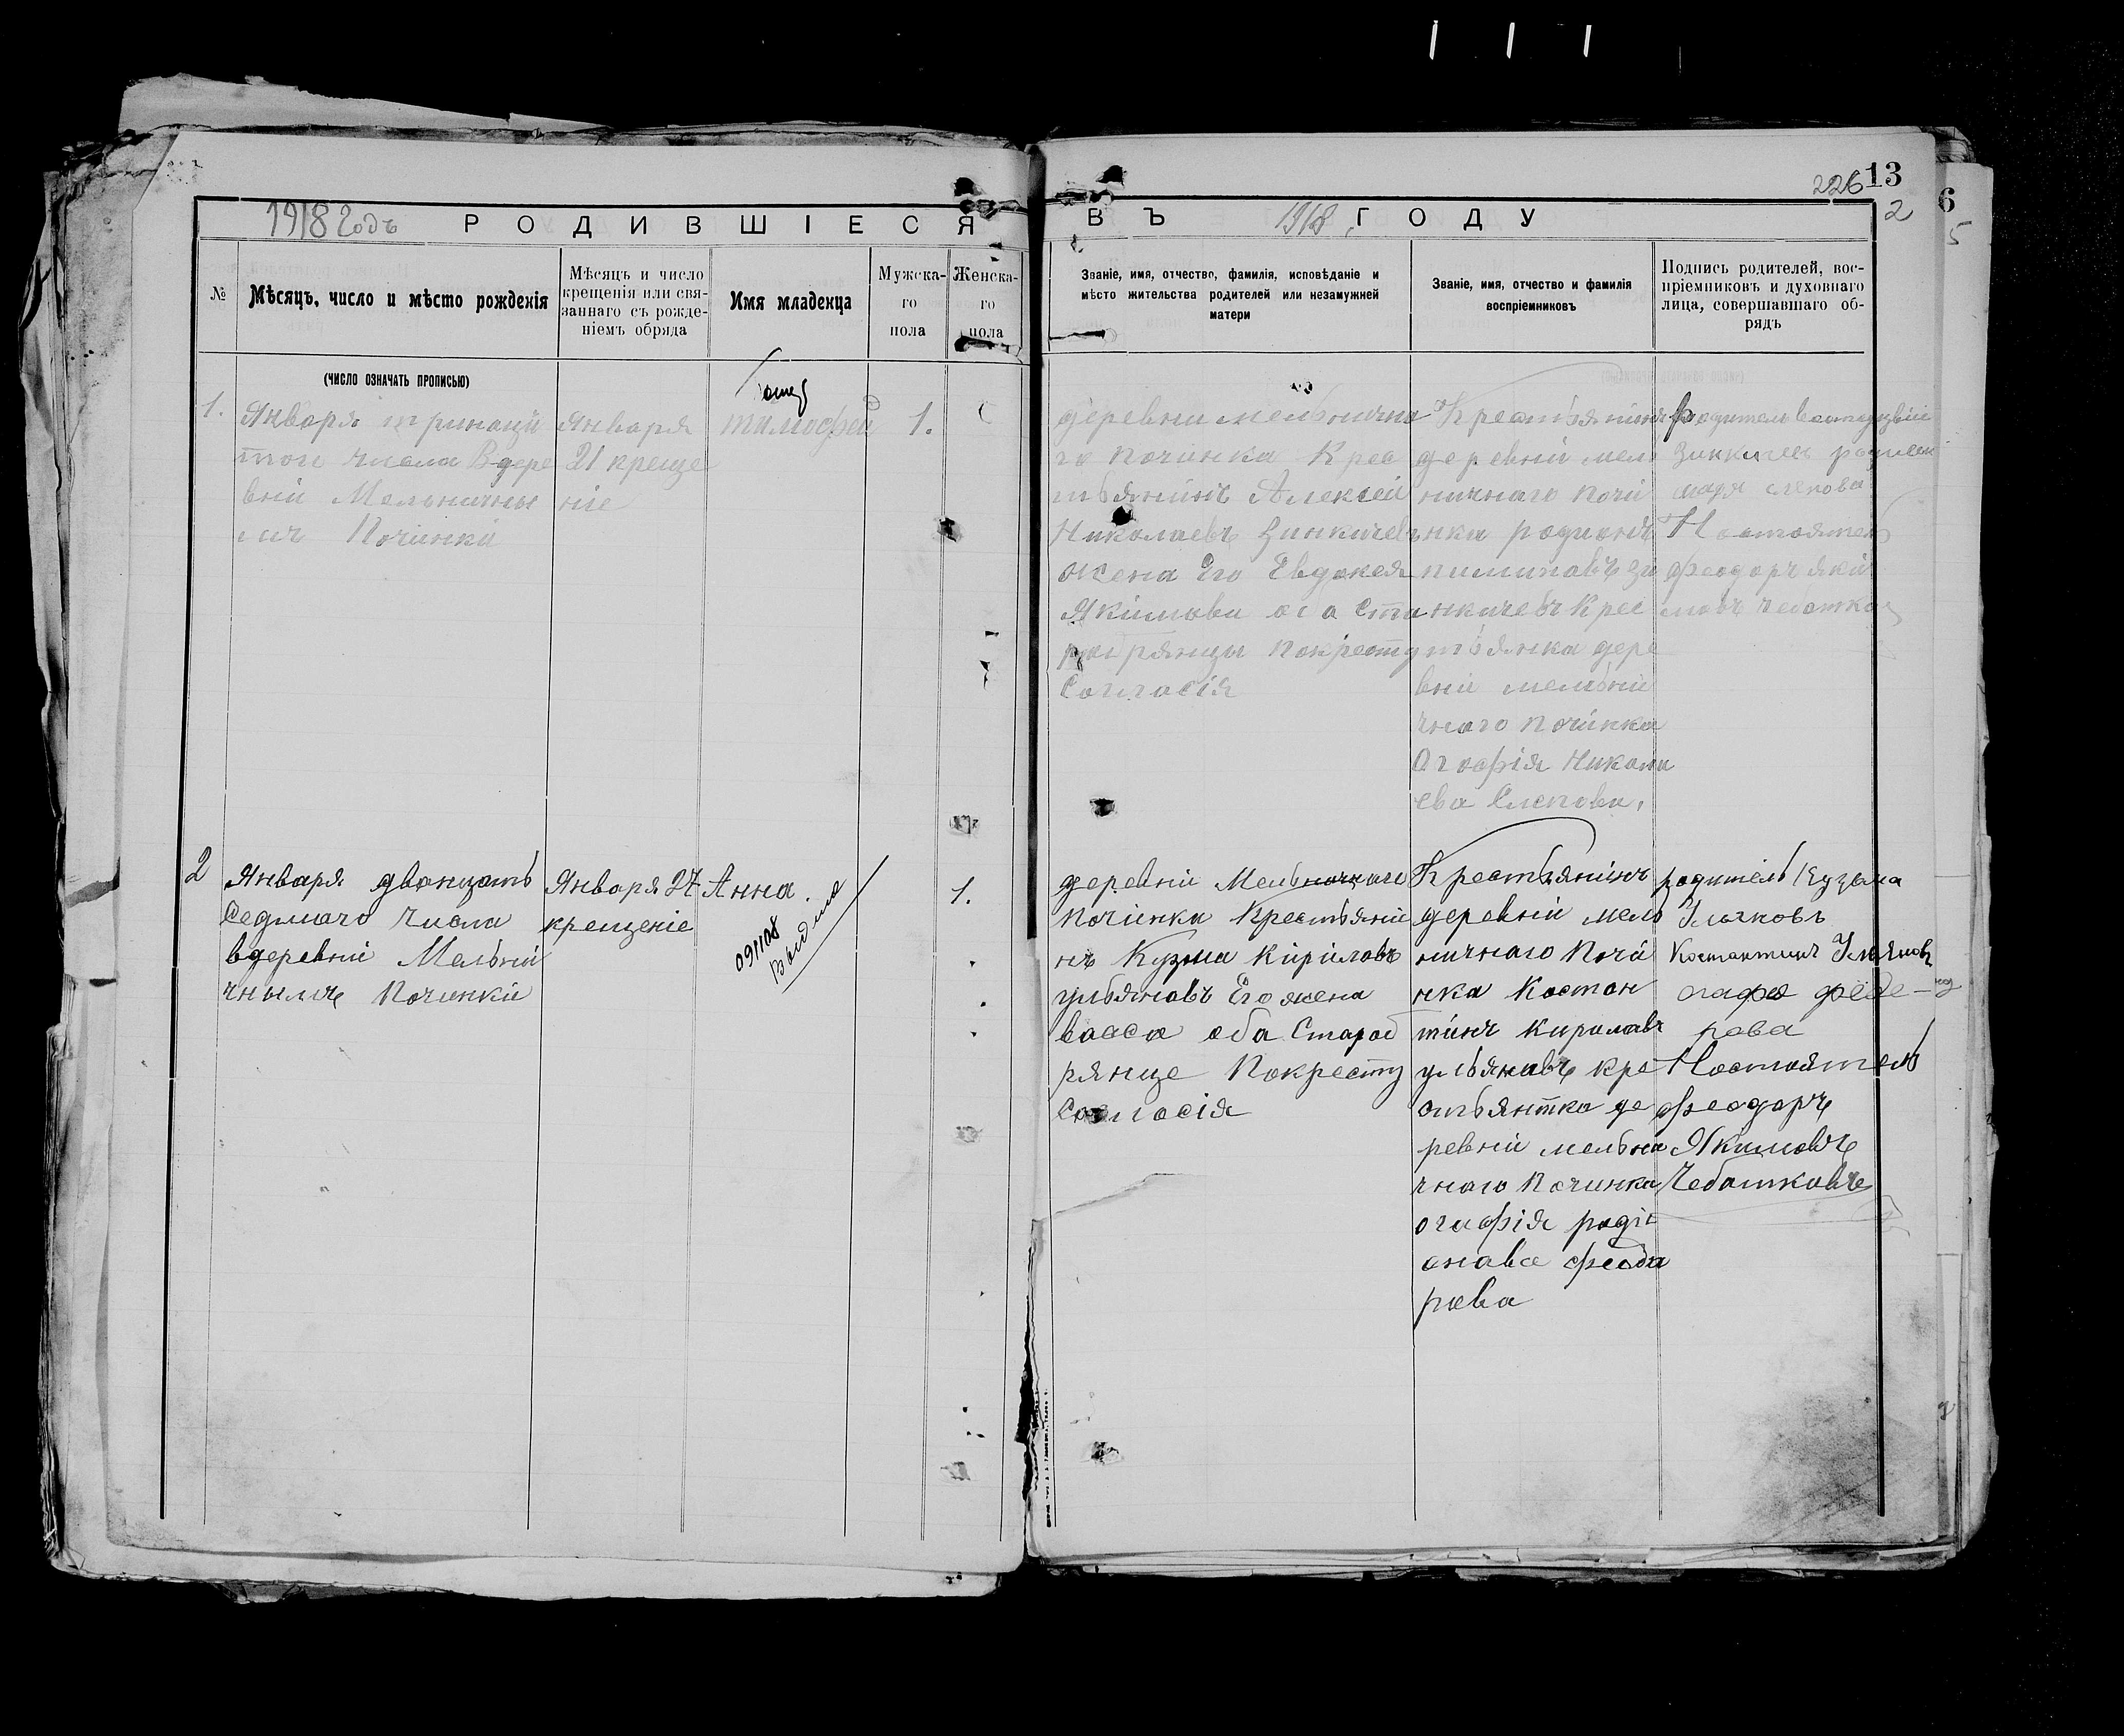 226 13
2
6
5
1918 Годъ РОДИВШІЕСЯ
ВЪ 1918, ГОДУ
№
Мѣсяцъ, число и мѣсто рожденія
Мѣсяцъ и число
крещенія или свя-
заннаго съ рожде-
ніемъ обряда
Имя младенца
Мужска-
го
пола
Женска-
го
пола
Званіе, имя, отчество, фамилія, исповѣданіе и
мѣсто жительства родителей или незамужней
матери
Званіе, имя, отчество и фамилія
воспріемниковъ
Подпись родителей, вос-
пріемниковъ и духовнаго
лица, совершавшаго об-
рядъ
(число означать прописью)
1.
Января тринаци
того числа Вдере
вніи Мельничны
мъ Починкіи
Января
21 креще
ніе
тимофей
1.
деревни мельнична
го починка Крес
тьянинъ Алексей
Николаевъ Зинкичевъ
жена Его Евдокея
Якімова оба Ста
рообрянцы покрест
Согласія
Крестьянинъ
деревніи мель
ничнаго почи
нка родионъ
пиминавъ зи
нкичевъ Крес
тьянка дере
вніи мельни
чнаго починка
Огафія Никола
ева Слепова.
родитель
Настоятель
феодоръ які
мовъ чебатков
2
Января дванцать
Седмаго числа
вдеревніи Мельни
чнымъ Починкіи
Января 27
крещеніе
Анна.
091108
выдана
1.
деревніи Мельничнаго
починка Крестьяни
нъ Кузма Кірілавъ
ульянавъ Его жена
васса оба Староб
рянце Покресту
Согласія
Крестьянинъ
деревніи мель
ничнаго Почи
нка Костан
тинъ Кирилавъ
ульянавъ кре
стьянтка де
ревніи мельни
чнаго Починка
огафія раді
онавa феода
рава
родитель Кузьма
Ульяновъ
Костантинъ Ульяновъ
огафя феде-
рова
Настоятель
феодоръ
Якимовъ
Чебатковъ